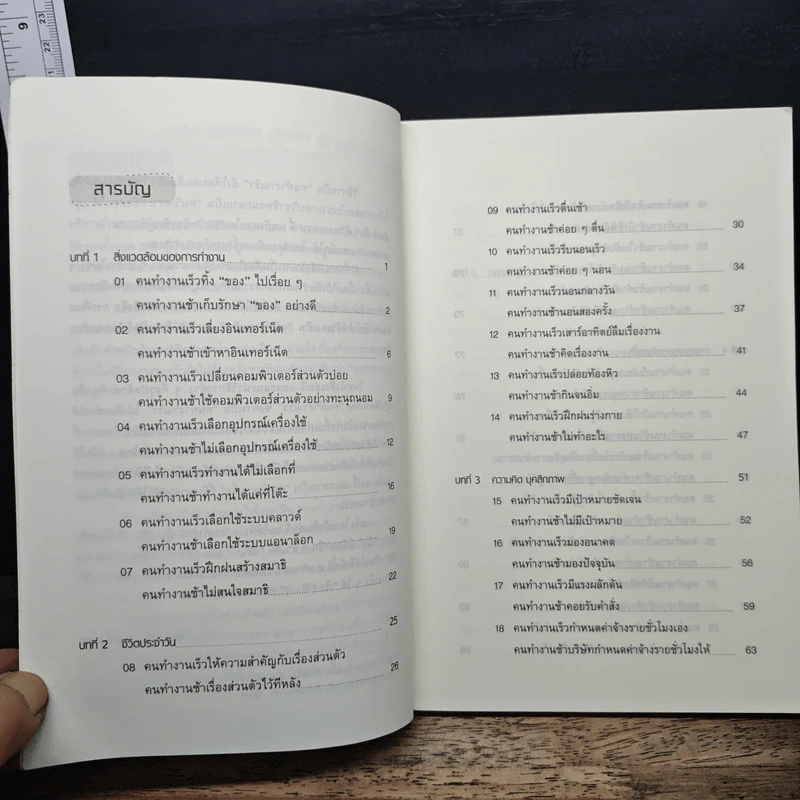 สารบัญ
บทที่ 1 สิ่งแวดล้อมของการทำงาน 1
01 คนทำงานเร็วทิ้ง “ของ” ไปเรื่อย ๆ
คนทำงานช้าเก็บรักษา “ของ” อย่างดี 2
02 คนทำงานเร็วเลี่ยงอินเทอร์เน็ต
คนทำงานช้าเข้าหาอินเทอร์เน็ต 6
03 คนทำงานเร็วเปลี่ยนคอมพิวเตอร์ส่วนตัวบ่อย
คนทำงานช้าใช้คอมพิวเตอร์ส่วนตัวอย่างทะนุถนอม 9
04 คนทำงานเร็วเลือกอุปกรณ์เครื่องใช้
คนทำงานช้าไม่เลือกอุปกรณ์เครื่องใช้ 12
05 คนทำงานเร็วทำงานได้ไม่เลือกที่
คนทำงานช้าทำงานได้แค่ที่โต๊ะ 16
06 คนทำงานเร็วเลือกใช้ระบบคลาวด์
คนทำงานช้าเลือกใช้ระบบแอนาล็อก 19
07 คนทำงานเร็วฝึกฝนสร้างสมาธิ
คนทำงานช้าไม่สนใจสมาธิ 22
บทที่ 2 ชีวิตประจำวัน 25
08 คนทำงานเร็วให้ความสำคัญกับเรื่องส่วนตัว
คนทำงานช้าเรื่องส่วนตัวไว้ทีหลัง 26
09 คนทำงานเร็วตื่นเช้า
คนทำงานช้าค่อย ๆ ตื่น 30
10 คนทำงานเร็วรีบนอนเร็ว
คนทำงานช้าค่อย ๆ นอน 34
11 คนทำงานเร็วนอนกลางวัน
คนทำงานช้านอนสองครั้ง 37
12 คนทำงานเร็วเสาร์อาทิตย์ลืมเรื่องงาน
คนทำงานช้าคิดเรื่องงาน 41
13 คนทำงานเร็วปล่อยท้องหิว
คนทำงานช้ากินจนอิ่ม 44
14 คนทำงานเร็วฝึกฝนร่างกาย
คนทำงานช้าไม่ทำอะไร 47
บทที่ 3 ความคิด บุคลิกภาพ 51
15 คนทำงานเร็วมีเป้าหมายชัดเจน
คนทำงานช้าไม่มีเป้าหมาย 52
16 คนทำงานเร็วมองอนาคต
คนทำงานช้ามองปัจจุบัน 56
17 คนทำงานเร็วมีแรงผลักดัน
คนทำงานช้าคอยรับคำสั่ง 59
18 คนทำงานเร็วกำหนดค่าจ้างรายชั่วโมงเอง
คนทำงานช้าบริษัทกำหนดค่าจ้างรายชั่วโมงให้ 63